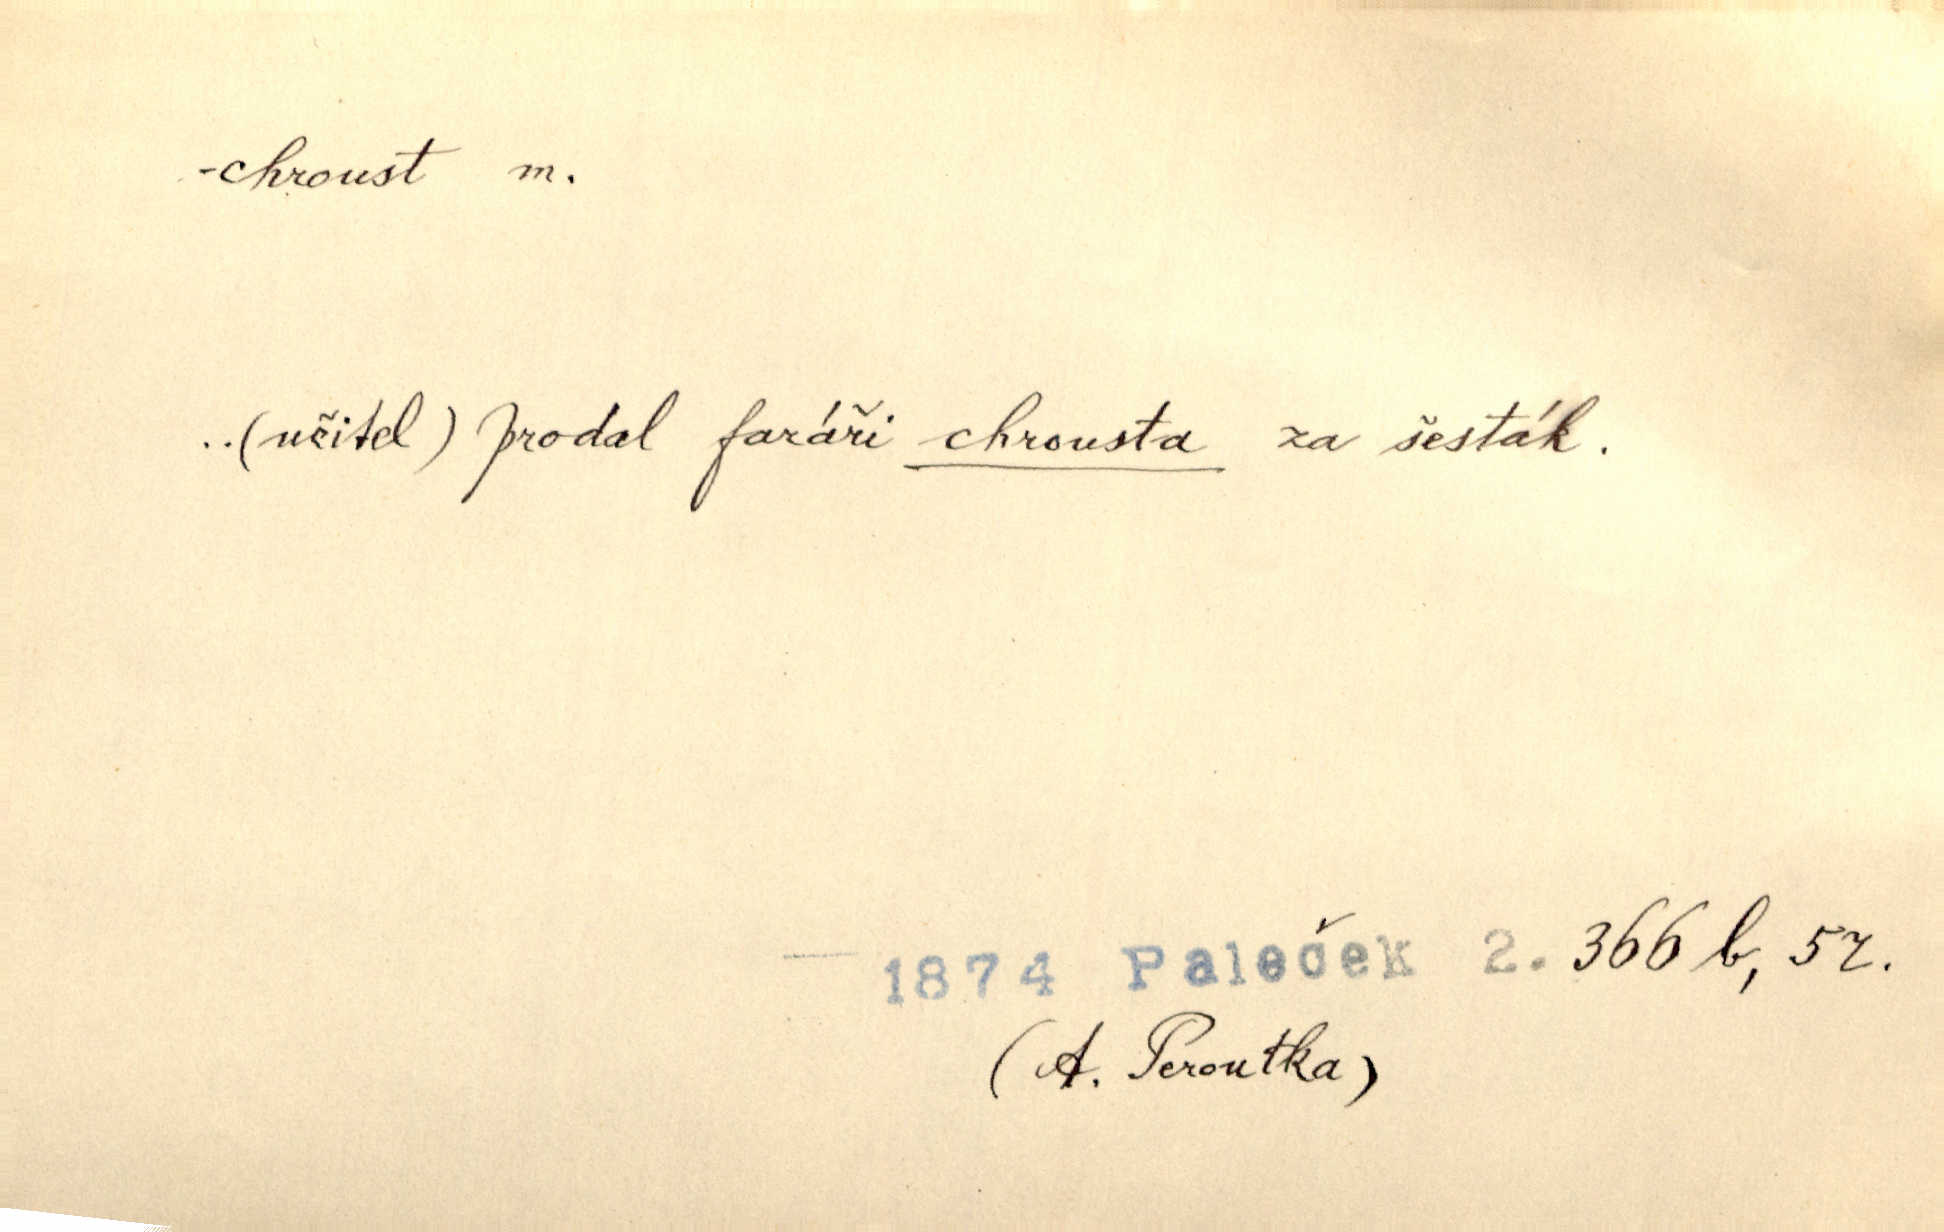 -chroust m.
..(učitel) prodal faráři chrousta za šesták.
— 1874 Paleček 2. 366 b, 57.
(A. Peroutka)